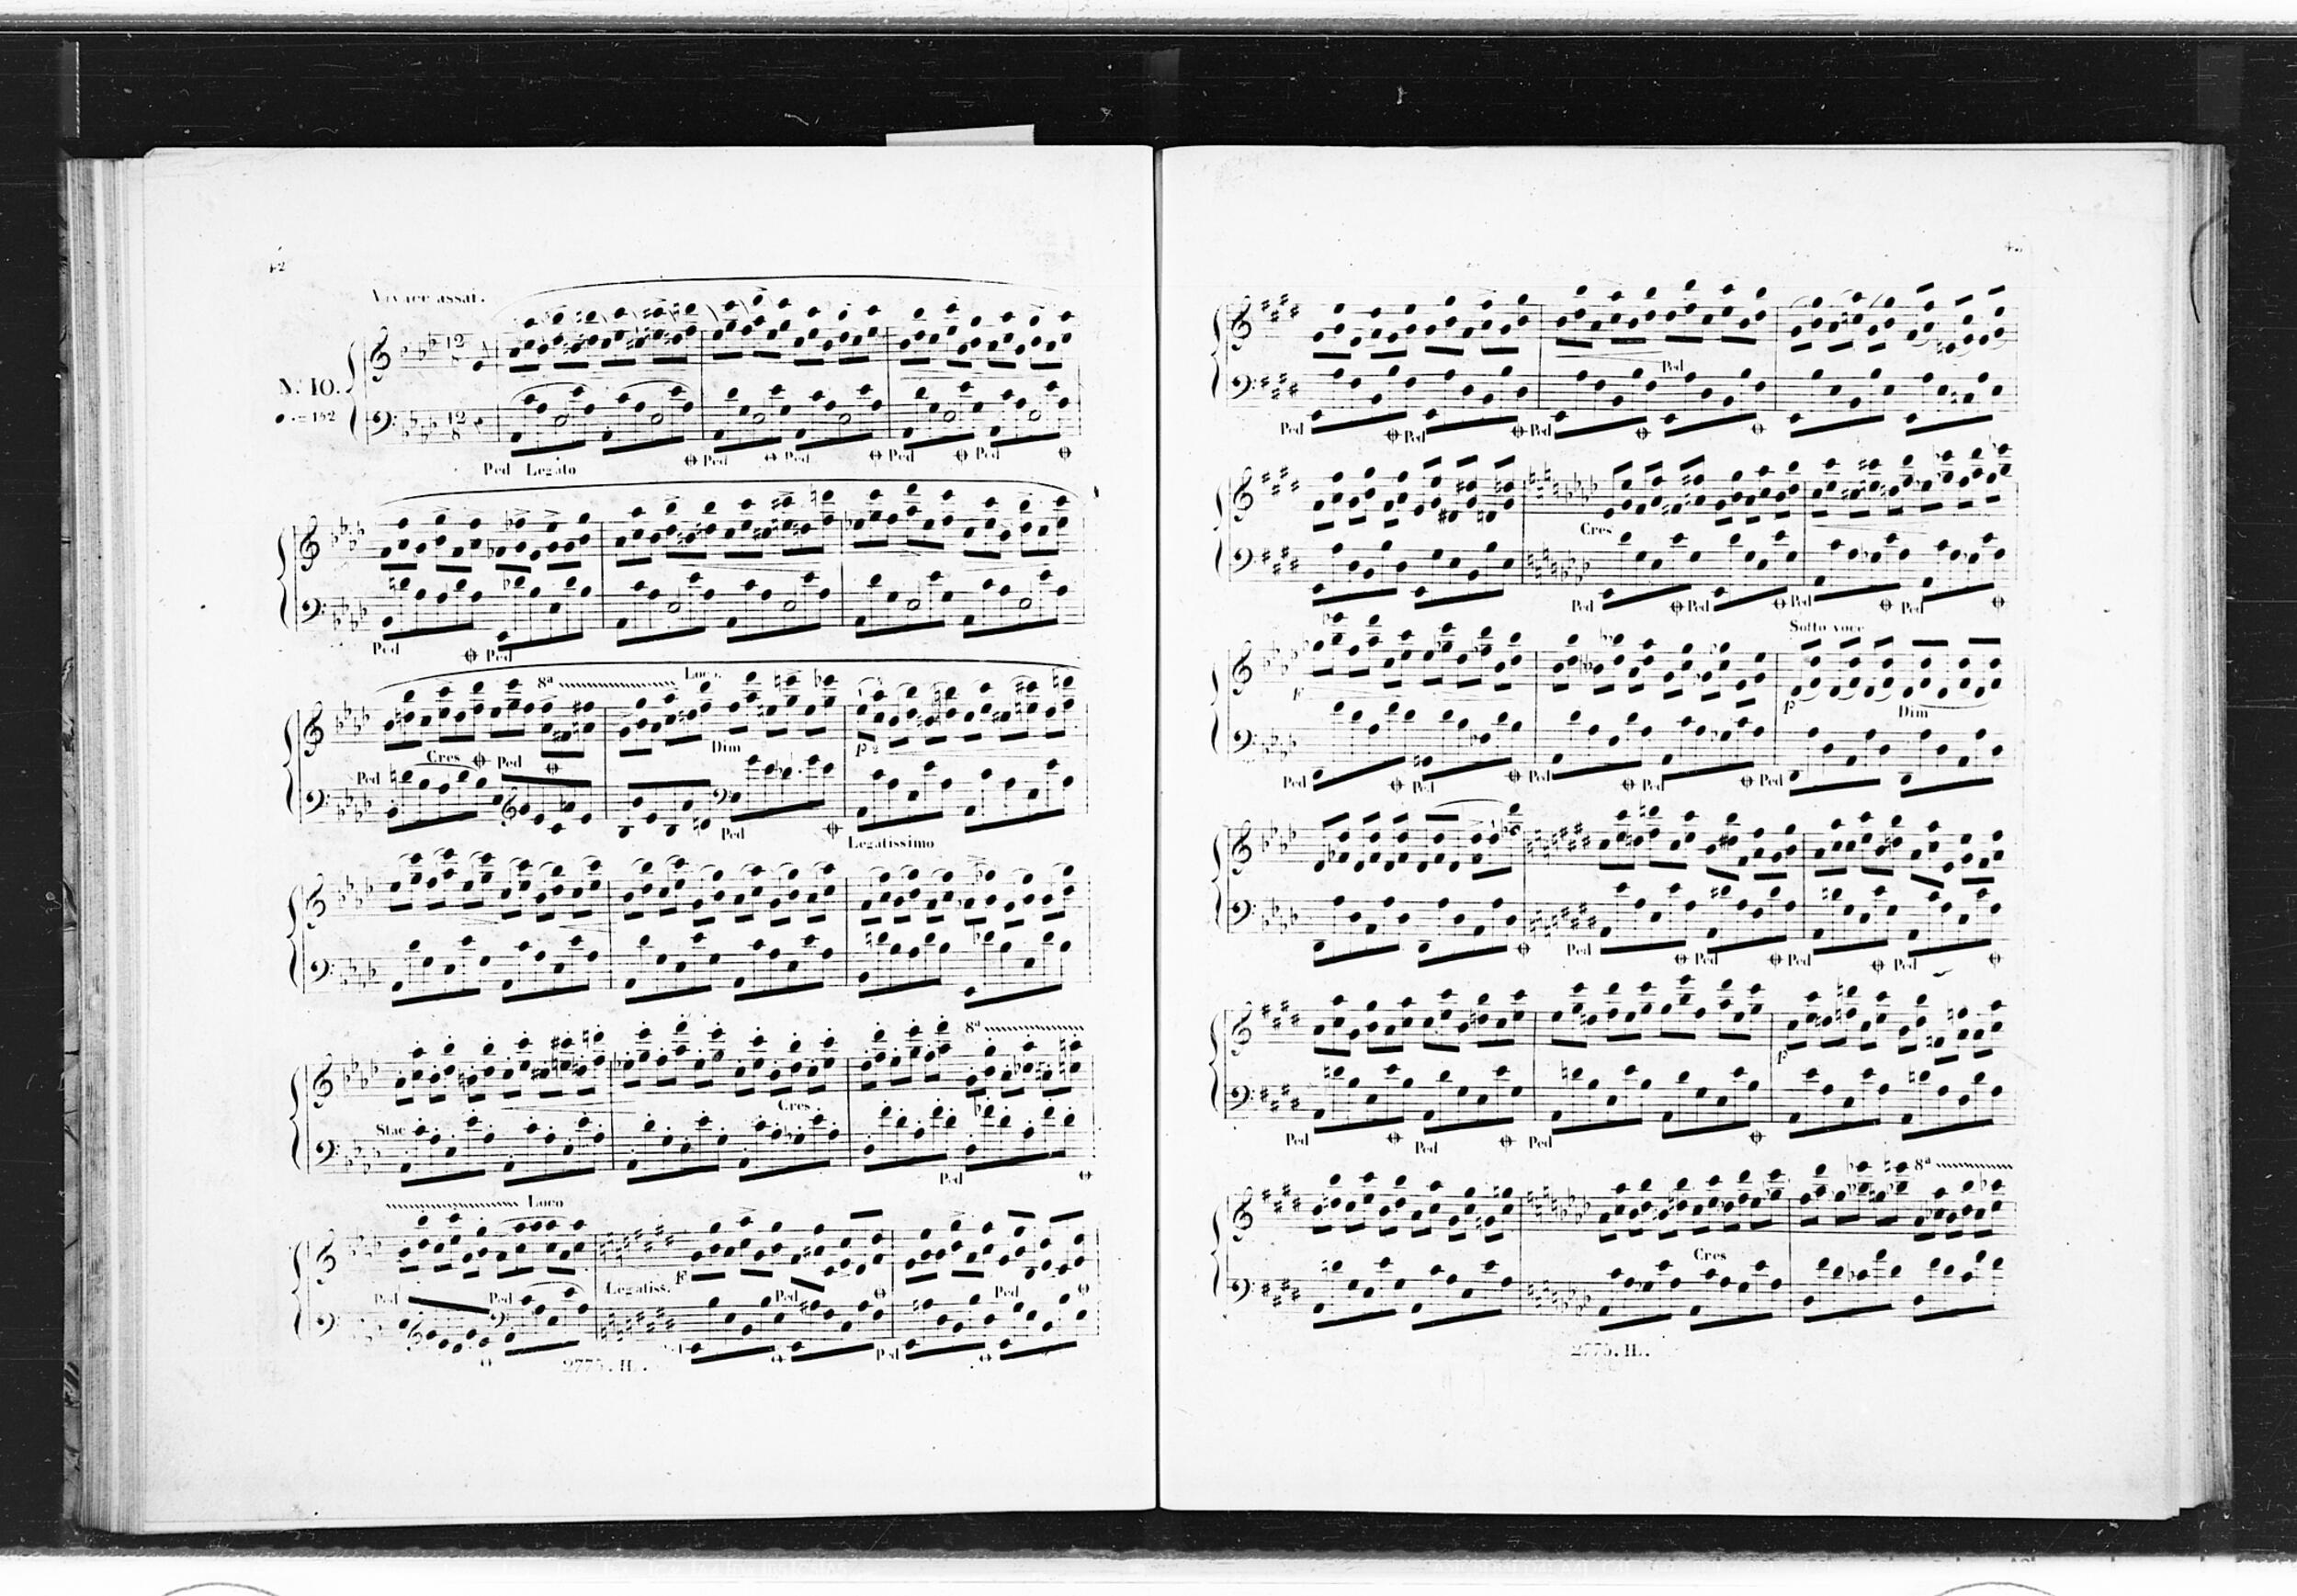 42
Vivace assai.
N. 10.
= 152
Ped Legato Ped Ped Ped Ped
Ped Ped
8ª Loco.
Ped Cres Ped Dim P
Ped Legatissimo
8ª
Stac Cres
Ped
Loco
Ped Ped Legatiss. F Ped Ped
Ped
2775. H.
Ped
Ped Ped Ped
Cres
Ped Ped Ped Ped
Sotto voce
F P Dim
Ped Ped Ped Ped Ped
Ped Ped Ped Ped
P
Ped Ped Ped
8ª
Cres
2775. H.